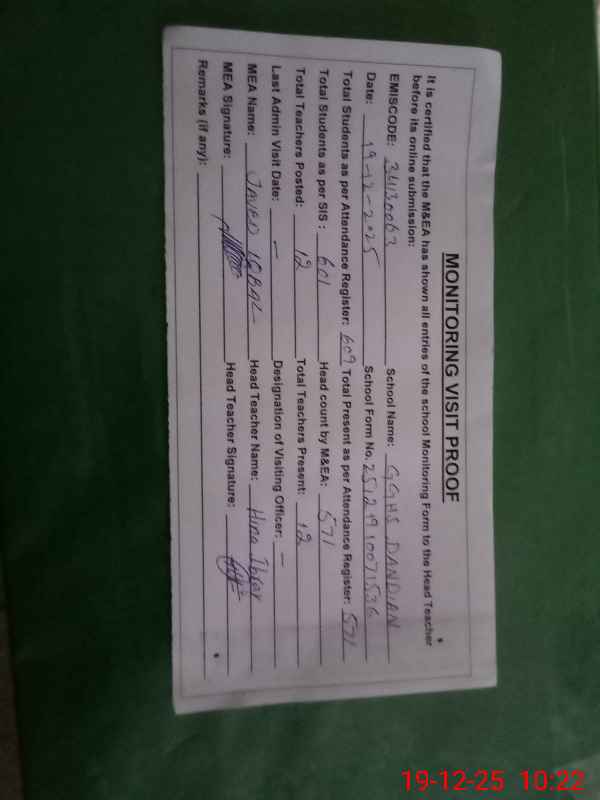 MONITORING VISIT PROOF
It is certified that the M&EA has shown all entries of the school Monitoring Form to the Head Teacher
before its online submission:
EMISCODE: 34130063 School Name: GGHS DANDIAN
Date: 19-12-2025 School Form No. 2512191007153G
Total Students as per Attendance Register: 609 Total Present as per Attendance Register: 571
Total Students as per SIS: 601 Head count by M&EA: 571
Total Teachers Posted: 12 Total Teachers Present: 12
Last Admin Visit Date: — Designation of Visiting Officer: —
MEA Name: JAVED IQBAL Head Teacher Name: Hira
MEA Signature: Head Teacher Signature:
Remarks (if any):
19-12-25 10:22